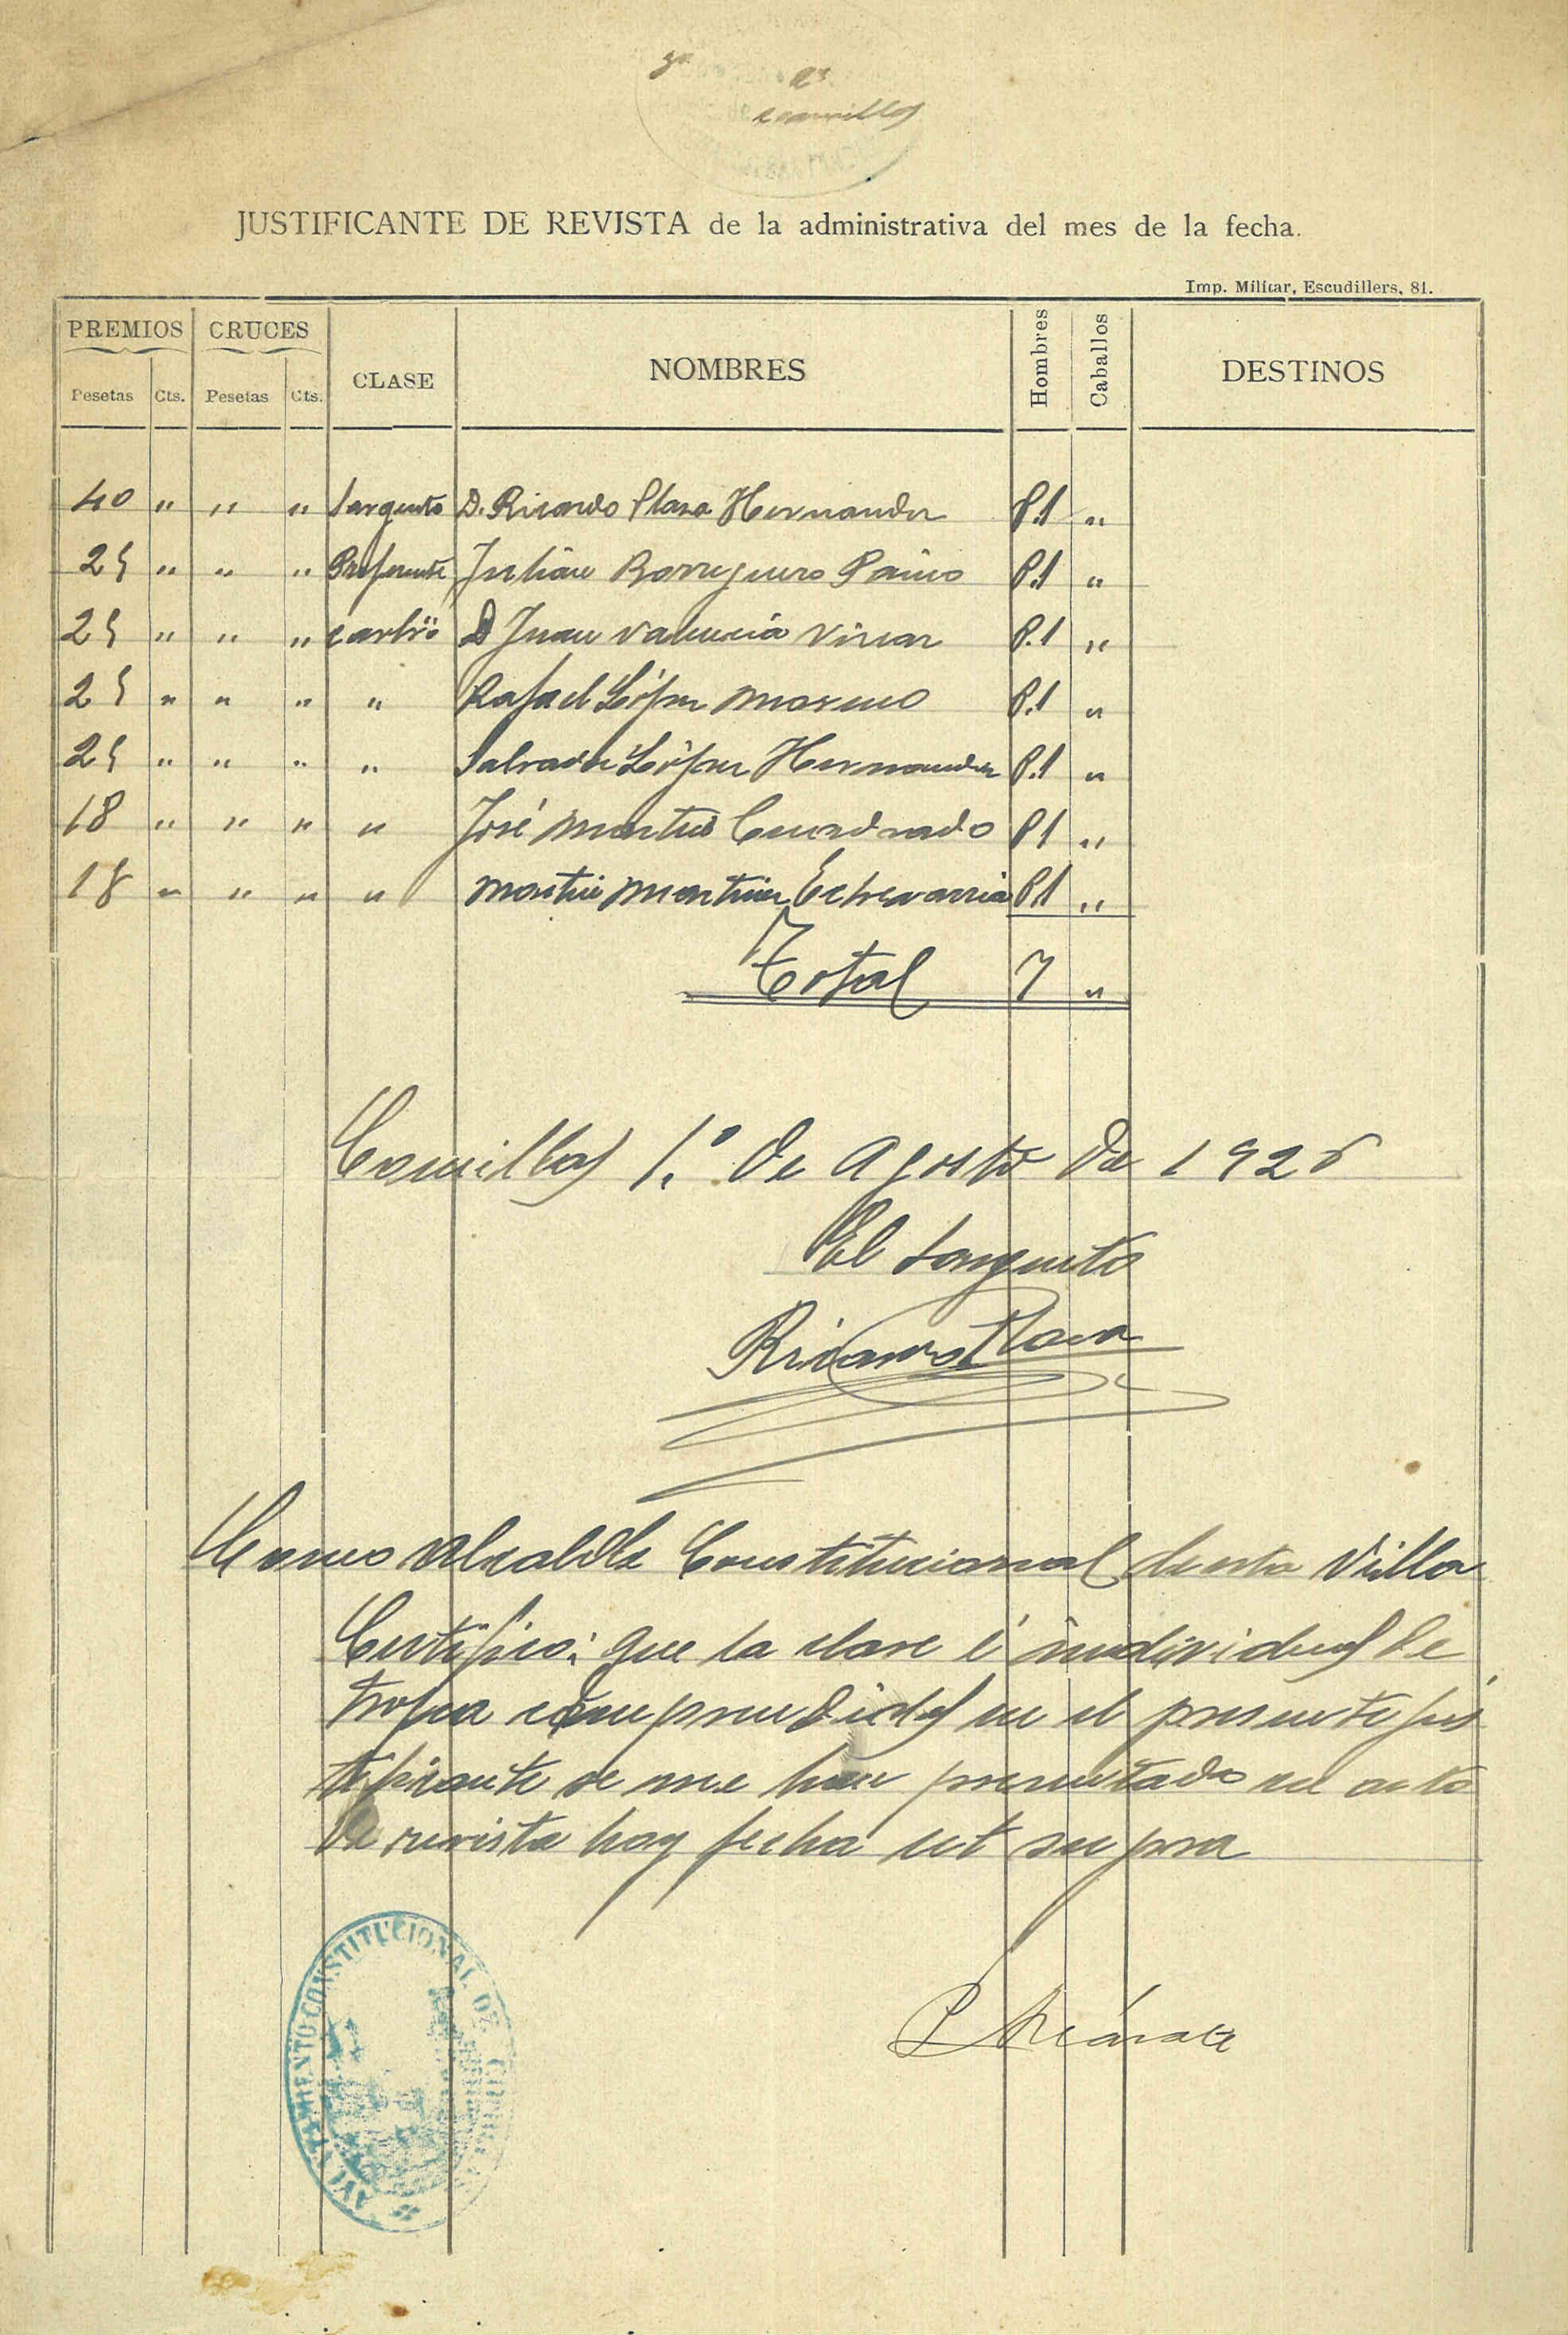 Comillas
JUSTIFICANTE DE REVISTA de la administrativa del mes de la fecha.
Imp. Militar, Escudillers, 81.
PREMIOS CRUCES CLASE NOMBRES Hombres Caballos DESTINOS
Pesetas Cts. Pesetas Cts.
40 " " " Sargento D. Ricardo Plaza Hernander P.1 "
25 " " " Preferente Julian Borreguero Paino P.1 "
25 " " " carbro D Juan Valencia P.1 "
25 " " " " Rafael López Moreno P.1 "
25 " " " " Salvador López Hernander P.1 "
18 " " " " José Martin Cuadrado P1 "
18 " " " " Martin Martinez Echevarria P1 "
Total 7 "
Comillas 1.º de Agosto de 1926
El Sargento
Ricardo Plaza
Como Alcalde Constitucional de esta Villa
Certifico: que la clase é individuos de
tropa comprendidos en el presente jus
tificante se me han presentado en acto
de revista hoy fecha ut supra
AYUNTAMIENTO CONSTITUCIONAL DE